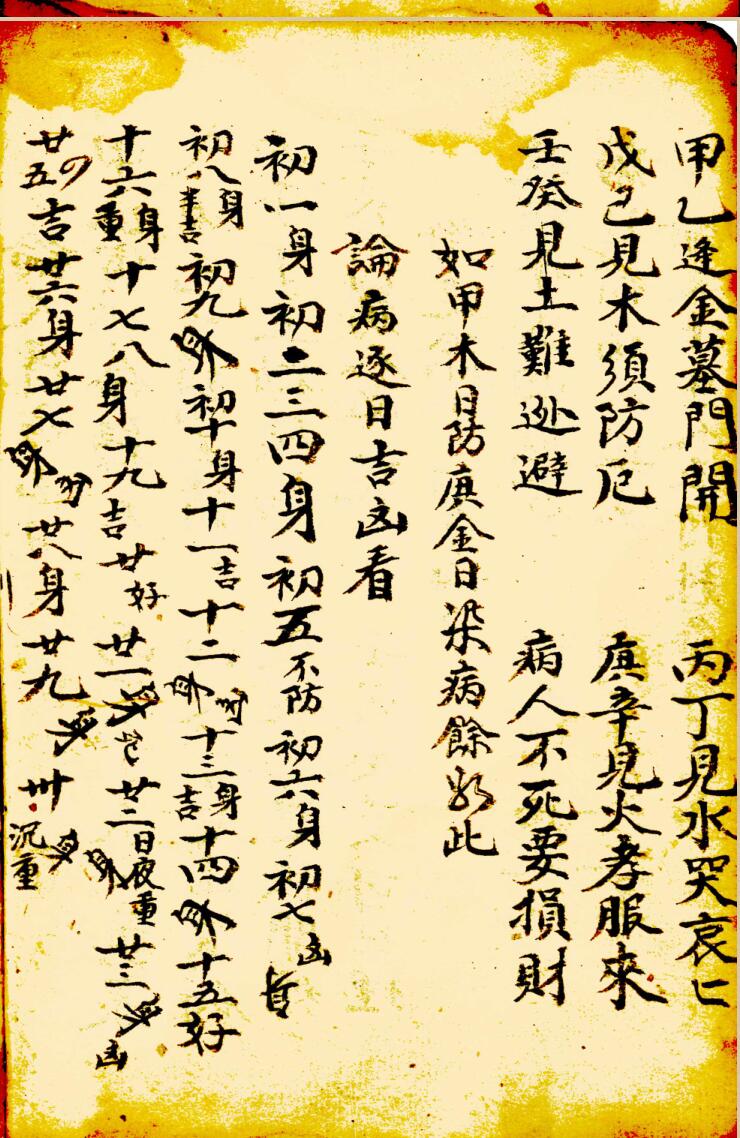 甲乙逢金墓門開 丙丁見水哭哀匕
戊己見木須防厄 庚辛見火孝服來
壬癸見土難逊避 病人不死要損財
如甲木日防庚金日染病餘此
論病逐日吉凶看
初一身初二三四身初五不防初六身初七凶
初八身半吉初九初十身十一吉十二十三身吉十四十五好
十六身重十七八身十九吉廿好廿一廿二日夜重廿三凶
廿四五吉廿六身廿七廿八身廿九卅沉重